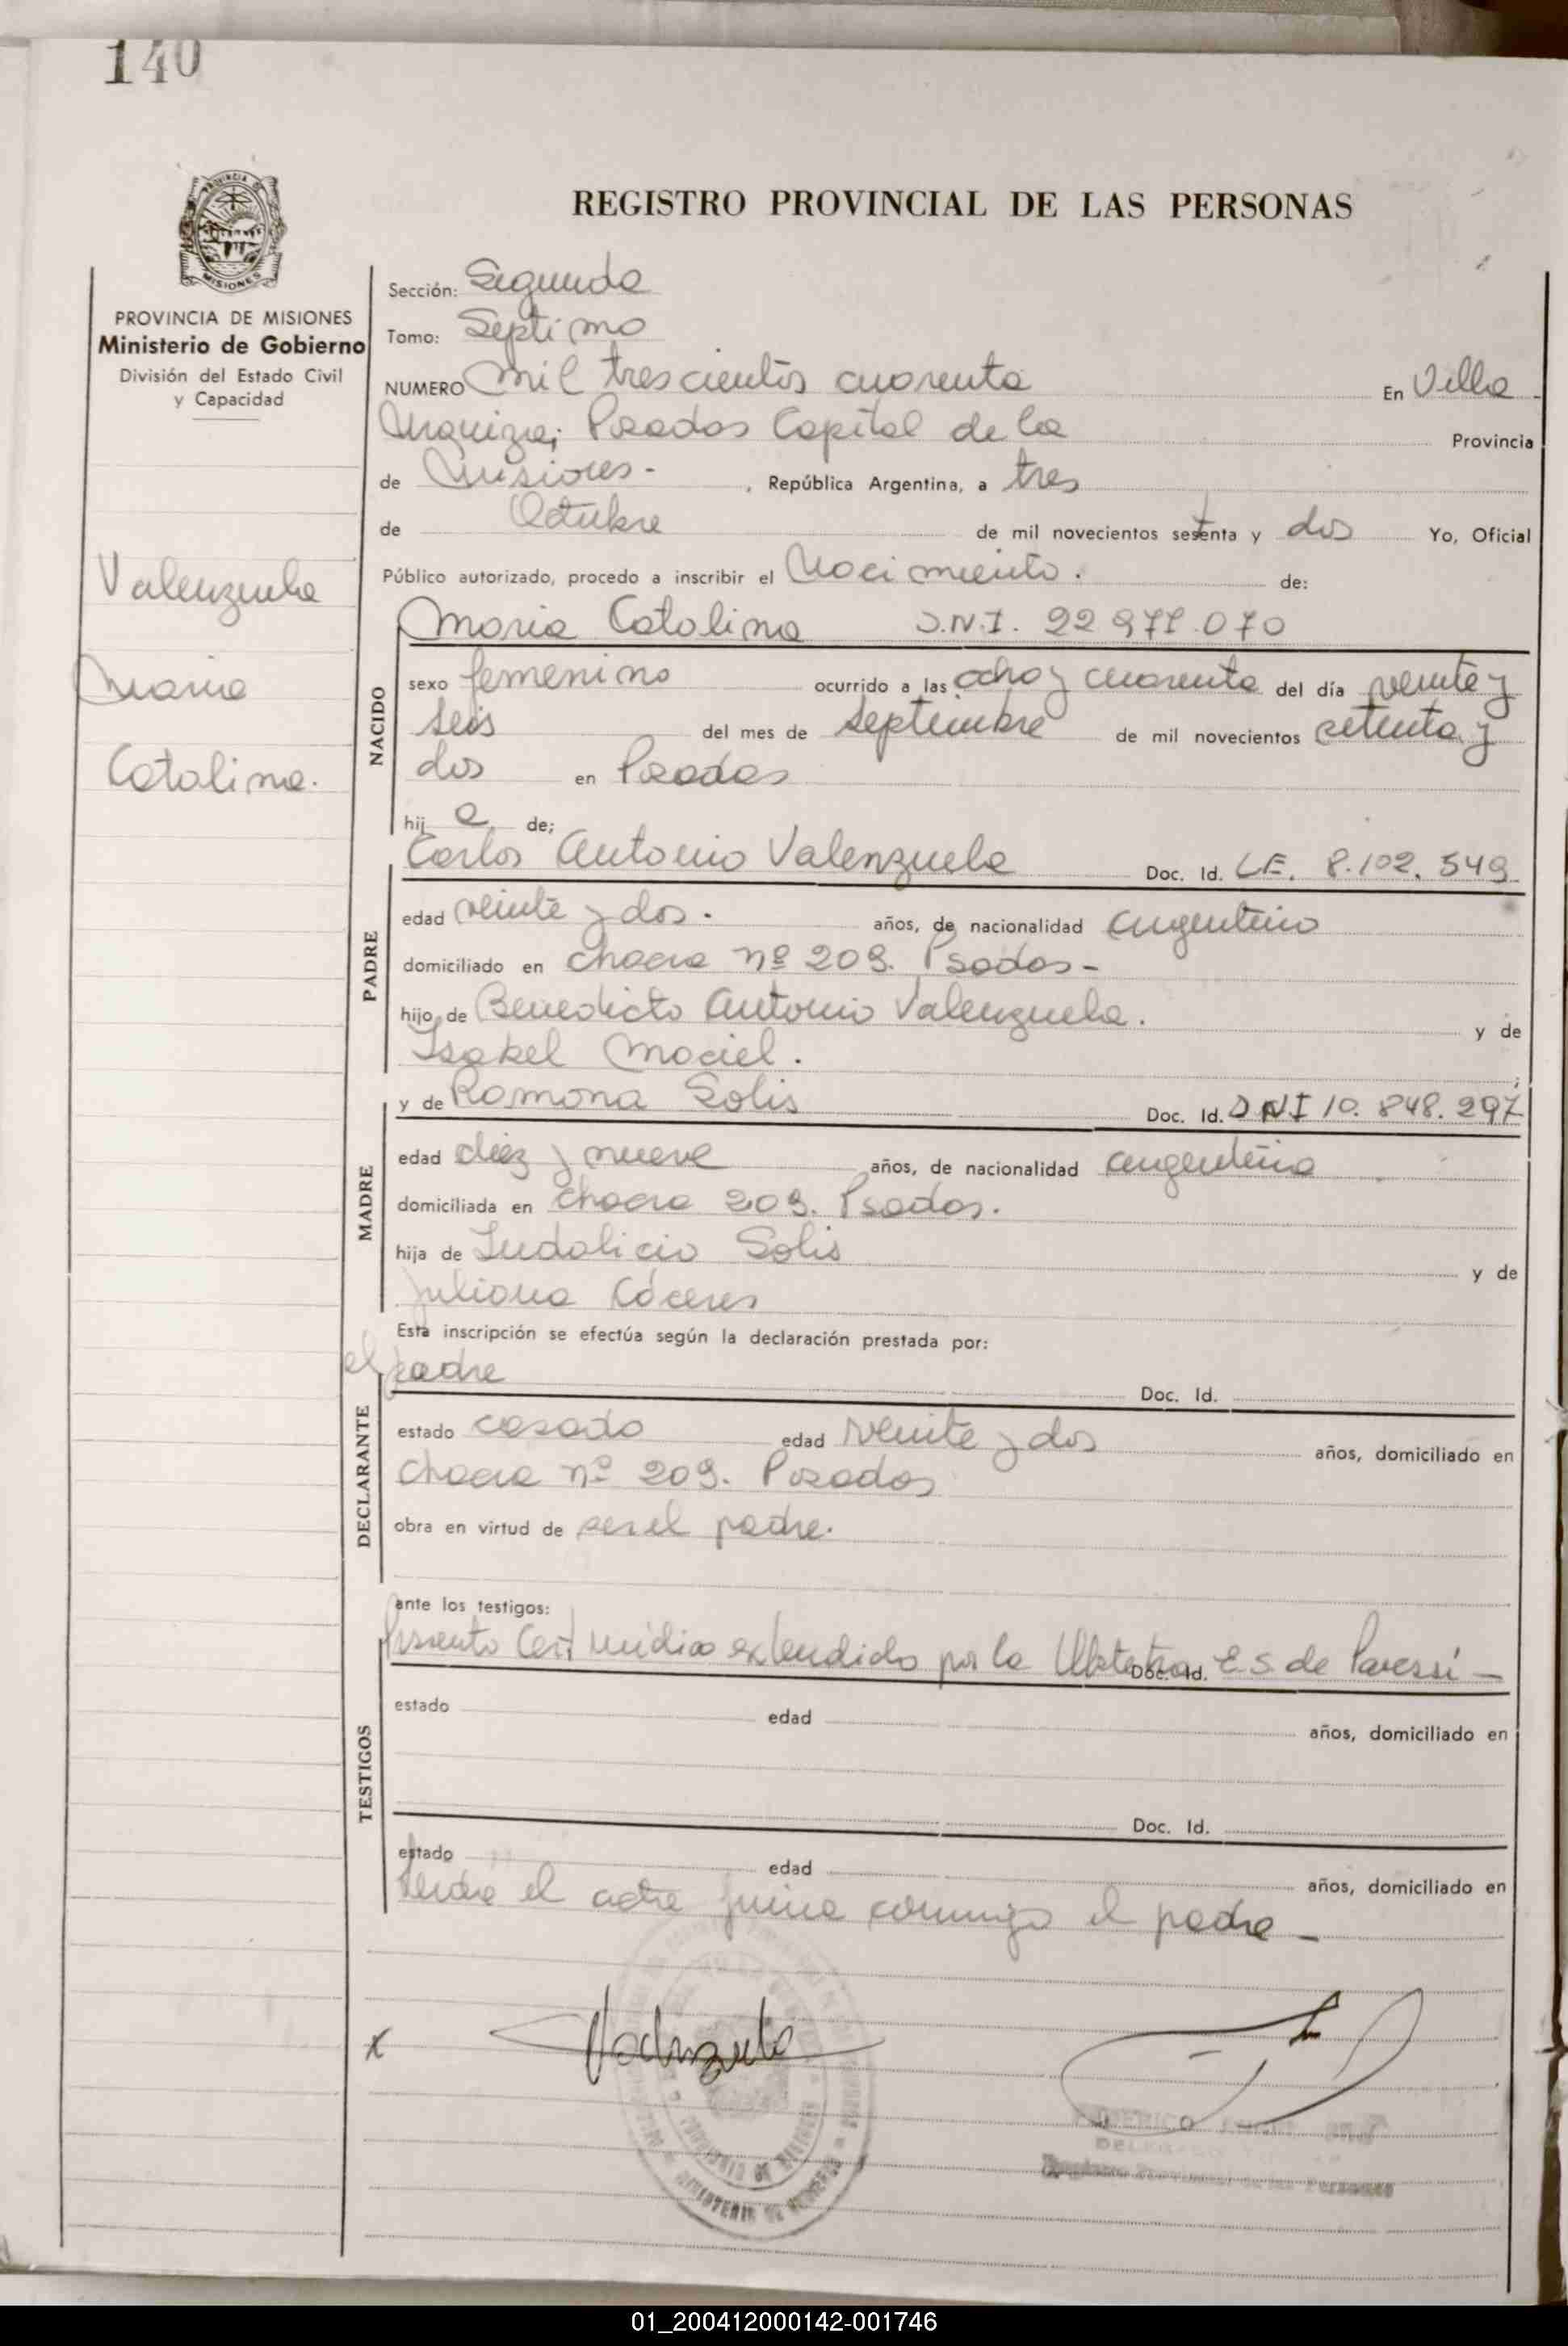 140
REGISTRO PROVINCIAL DE LAS PERSONAS
PROVINCIA DE MISIONES
Ministerio de Gobierno
División del Estado Civil
y Capacidad
Valenzuela
Maria
Catalina.
Sección: Segunda
Tomo: Septimo
NUMERO Mil trescientos cuarenta En Villa
Urquiza; Posadas Capital de la Provincia
de Misiones- , República Argentina, a tres
de Octubre de mil novecientos setenta y dos Yo, Oficial
Público autorizado, procedo a inscribir el Nacimiento. de:
Maria Catalina D.N.I. 22 977.070
NACIDO
sexo femenino ocurrido a las ocho y cuarenta del día veinte y
seis del mes de septiembre de mil novecientos setenta y
dos en Posadas
hij a de;
Carlos Antonio Valenzuela Doc. Id. LE. 8.102.549
PADRE
edad veinte y dos. años, de nacionalidad argentino
domiciliado en chacra nº 209. Psadas-
hijo de Benedicto Antonio Valenzuela. y de
Isabel Maciel. ;
y de Ramona Solis Doc. Id. DNI 10.848.297
MADRE
edad diez y nueve años, de nacionalidad argentina
domiciliada en chacra 209. Psadas.
hija de Indalicio Solis y de
Juliana Cáceres
Esta inscripción se efectúa según la declaración prestada por:
el padre Doc. Id.
DECLARANTE
estado casado edad veinte y dos años, domiciliado en
chacra nº 209. Posadas
obra en virtud de ser el padre.
ante los testigos:
Presento Cert médico extendido por la Obstetra Doc. Id. E.S. de Paressi -
TESTIGOS
estado edad años, domiciliado en
Doc. Id.
estado edad años, domiciliado en
Leida el acta firma conmigo el padre -
x Valenzuela
MINISTERIO DE GOBIERNO
PROVINCIA DE MISIONES
FEDERICO
Registro Provincial de las Personas
01_200412000142-001746